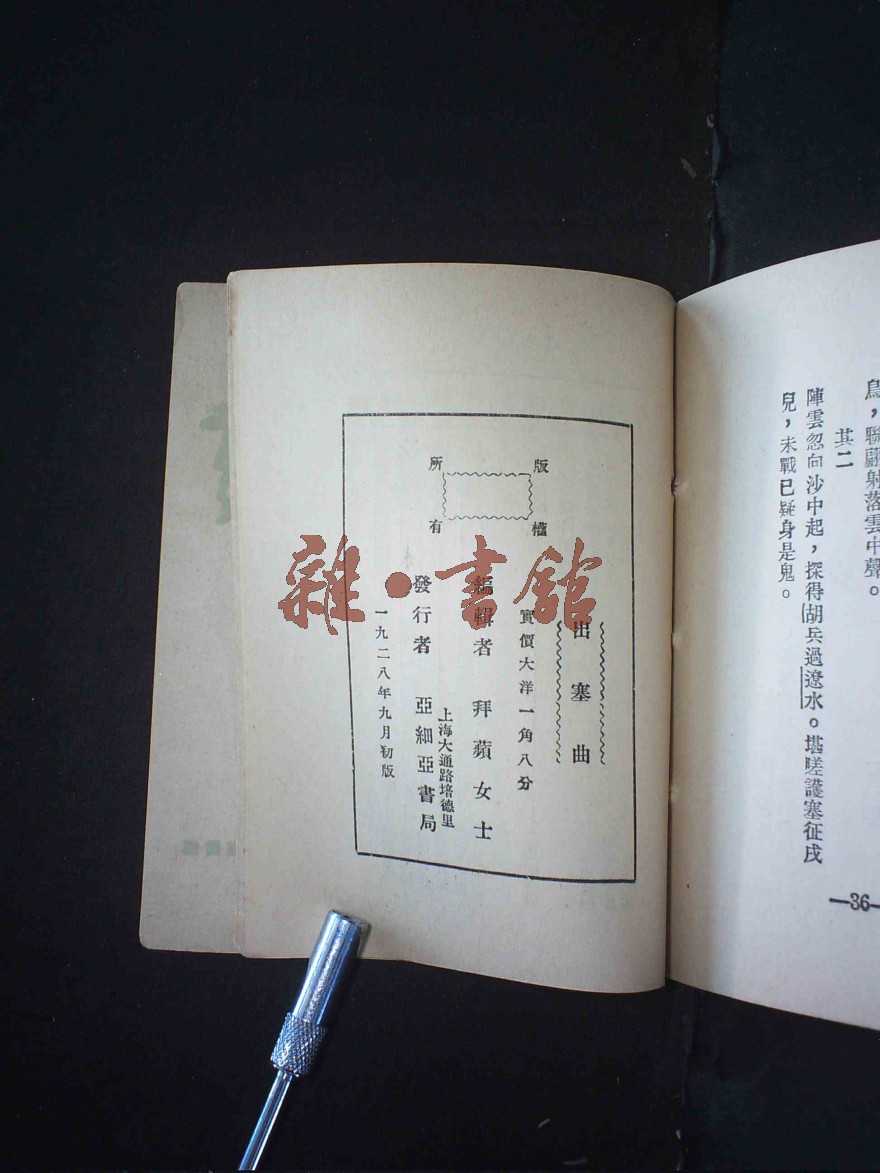 鳥，聯翩射落雲中聲。
其二
陣雲忽向沙中起，探得胡兵過遼水。堪嗟護塞征戍
兒，未戰已疑身是鬼。
—36—
版權
所有
出塞曲
實價大洋一角八分
編輯者 拜蘋女士
上海大通路培德里
發行者 亞細亞書局
一九二八年九月初版
雜·書館